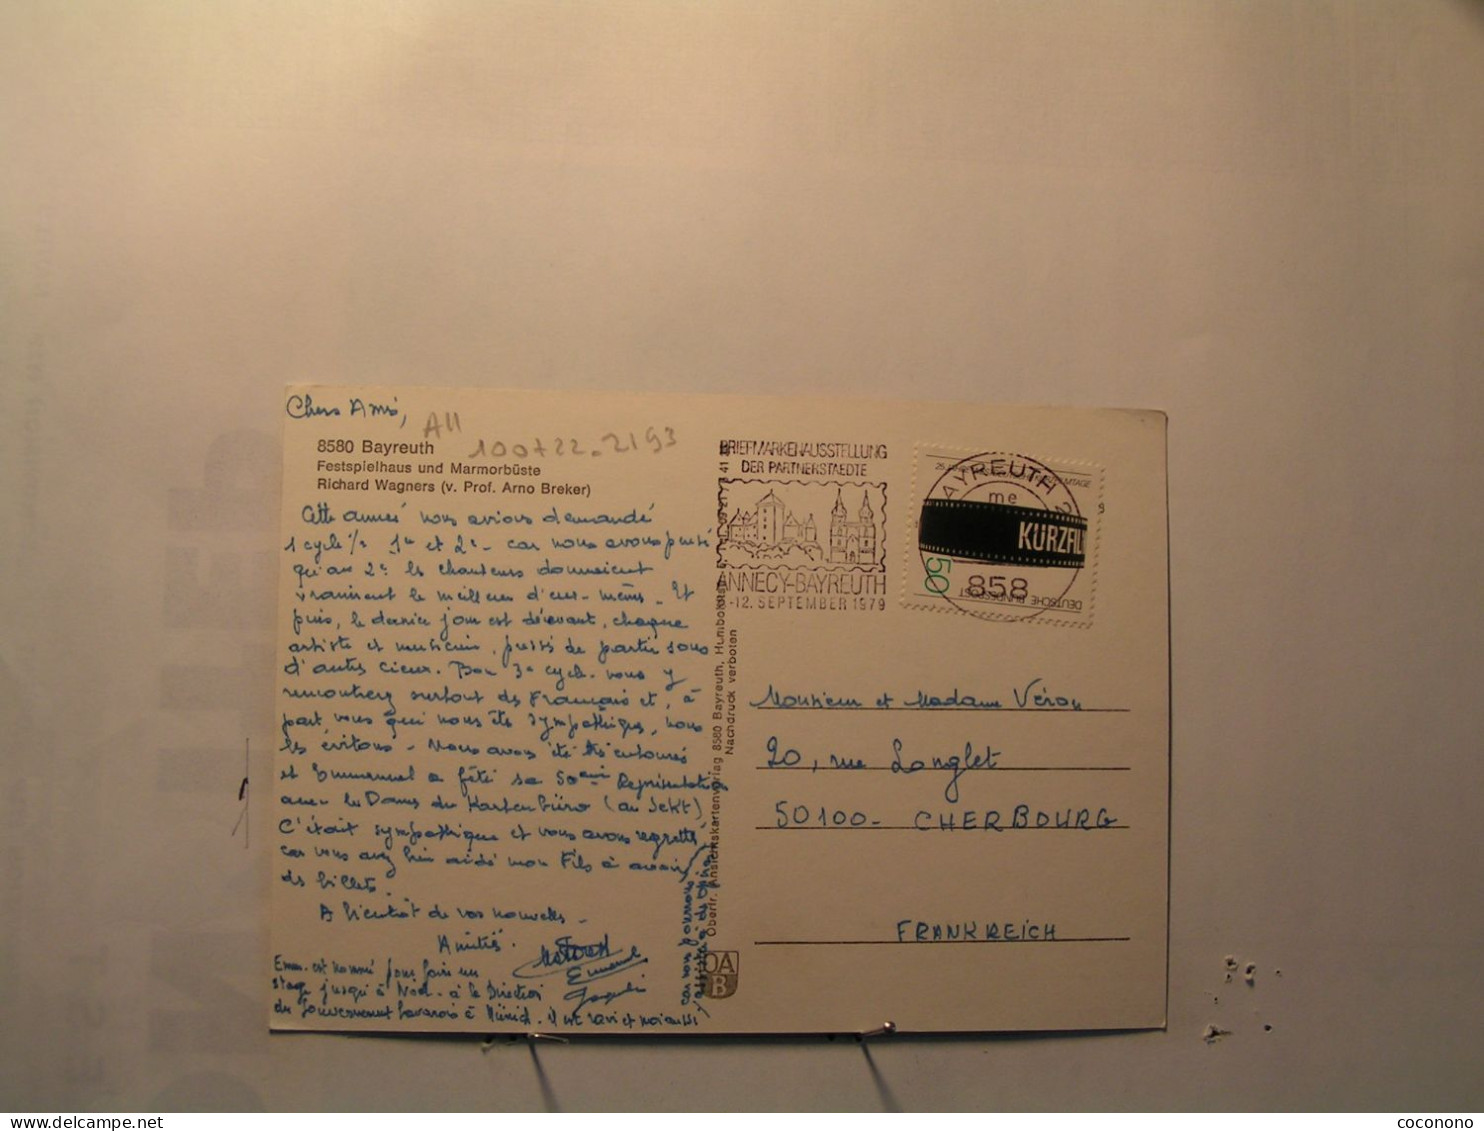 Chers Amis,
All
100722-2193
8580 Bayreuth
Festspielhaus und Marmorbüste
Richard Wagners (v. Prof. Arno Breker)
Cette année nous avions demandé
1 cycle 1er et 2e - car nous avons
qu'au 2e les chanteurs donnaient
vraiment le meilleur d'eux-mêmes. Et
puis, le dernier jour est décevant, chaque
artiste et musicien, pressé de partir sous
d'autres cieux. Bon 3e cycle. vous y
rencontrez surtout des Français et, à
part vous qui nous êtes sympathiques, nous
les évitons - Nous avons été très entourés
et Emmanuel a fêté sa 50ème Représentation
avec les Dames du Kartenbüro (au Sekt)
C'était sympathique et vous avons regretté,
car vous avez bien aidé mon Fils à avoir
des billets.
A bientôt de vos nouvelles -
Amitiés.
Emmanuel
Jacqueline
Emm. est nommé pour faire un
stage jusqu'à Noël - à la Direction
du Gouvernement Bavarois à Münich. il est ravi et moi aussi
car
BRIEFMARKENAUSSTELLUNG
DER PARTNERSTAEDTE
ANNECY-BAYREUTH
-12. SEPTEMBER 1979
BAYREUTH 2
me
858
KURZFIL
50
DEUTSCHE BUNDESPOST
Oberfr. Ansichtskartenverlag 8580 Bayreuth,
Nachdruck verboten
OA
B
Monsieur et Madame Véron
20, rue Longlet
50100- CHERBOURG
FRANKREICH
coconono